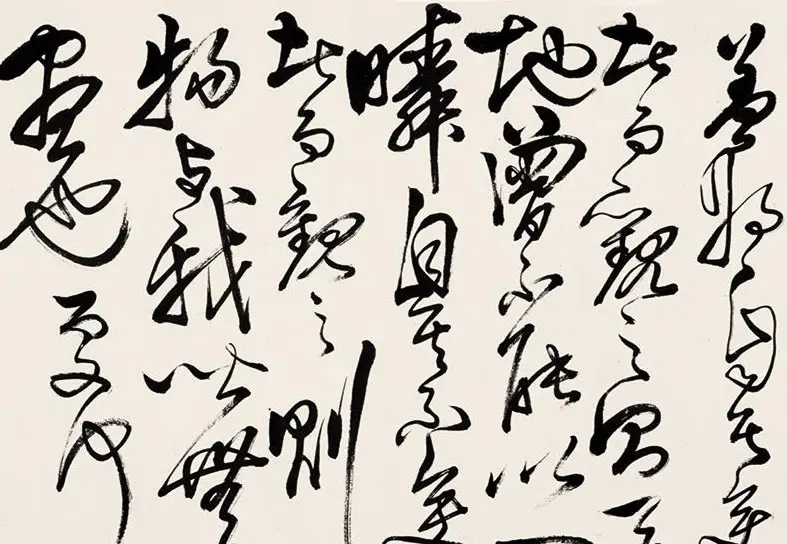 蓋將自其變
者而觀之則天
地曾不能以一
瞬自其不變
者而觀之則
物与我皆無
盡也而又何